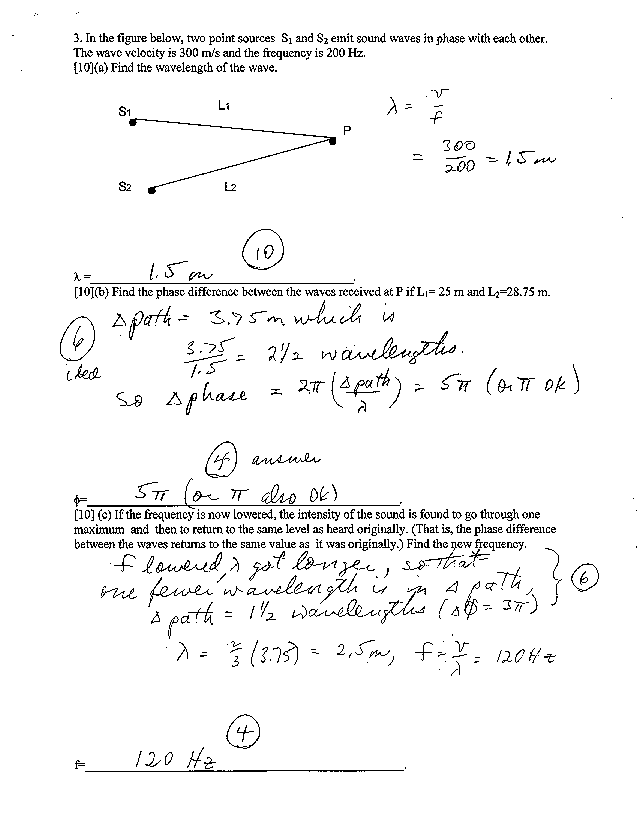 3. In the figure below, two point sources S1 and S2 emit sound waves in phase with each other.
The wave velocity is 300 m/s and the frequency is 200 Hz.
[10](a) Find the wavelength of the wave.
S1
L1
P
S2
L2
λ = v/f
= 300/200 = 1.5 m
10
λ = 1.5 m
[10](b) Find the phase difference between the waves received at P if L1= 25 m and L2=28.75 m.
6
idea
Δpath = 3.75 m which is
3.75/1.5 = 2 1/2 wavelengths.
So Δphase = 2π (Δpath/λ) = 5π (or π ok)
4 answer
ϕ= 5π (or π also OK)
[10] (c) If the frequency is now lowered, the intensity of the sound is found to go through one
maximum and then to return to the same level as heard originally. (That is, the phase difference
between the waves returns to the same value as it was originally.) Find the new frequency.
f lowered, λ got longer, so that
one fewer wavelength is in Δ path,
Δ path = 1 1/2 wavelengths (Δϕ = 3π)
6
λ = 2/3 (3.75) = 2.5 m, f = v/λ = 120 Hz
4
f= 120 Hz